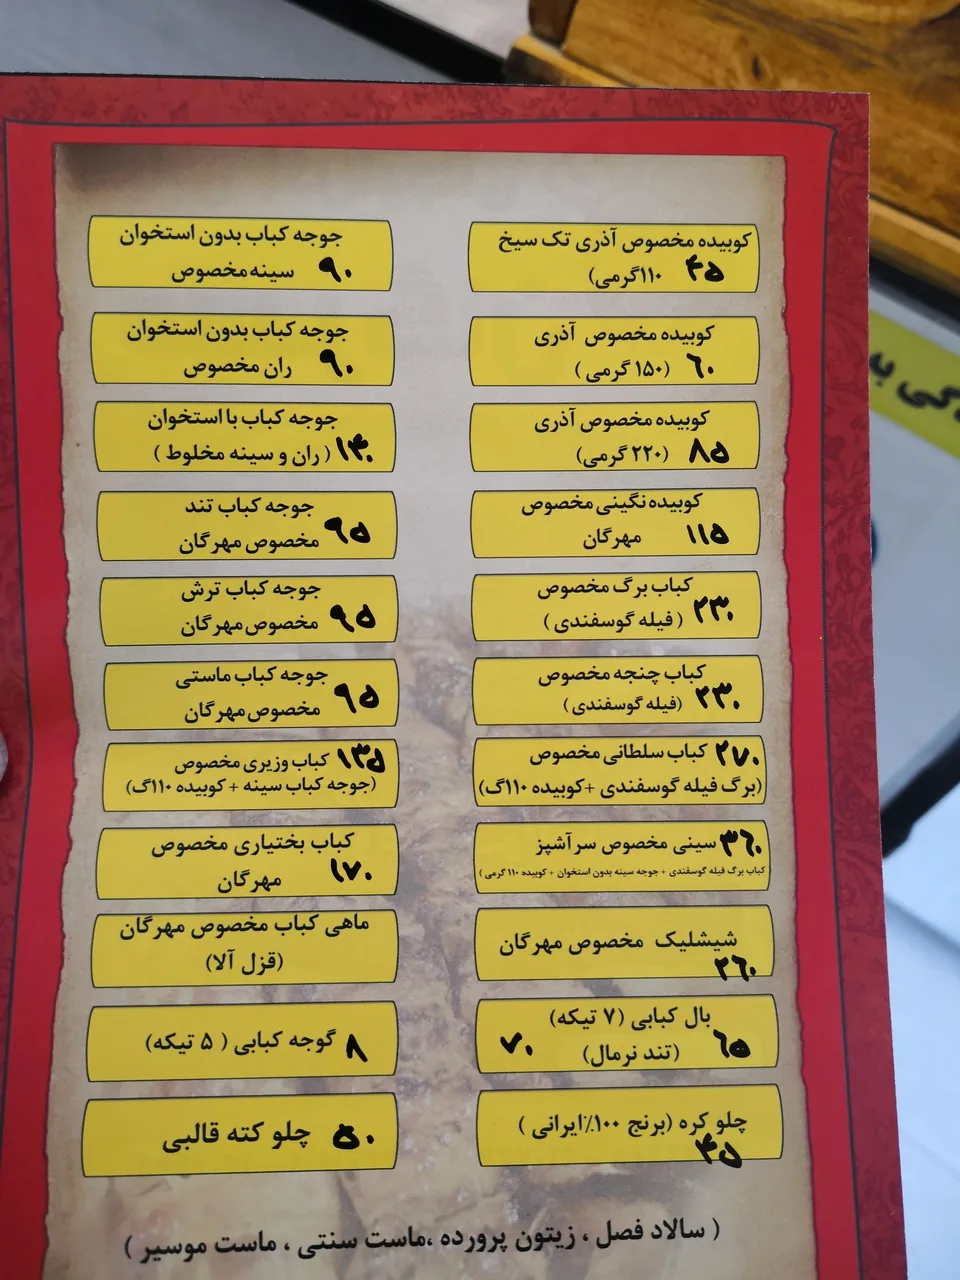 کوبیده مخصوص آذری تک سیخ
۱۱۰گرمی) ۴۵
کوبیده مخصوص آذری
(۱۵۰ گرمی ) ۶۰
کوبیده مخصوص آذری
(۲۲۰ گرمی) ۸۵
کوبیده نگینی مخصوص
مهرگان ۱۱۵
کباب برگ مخصوص
( فیله گوسفندی ) ۲۳۰
کباب چنجه مخصوص
(فیله گوسفندی) ۲۳۰
کباب سلطانی مخصوص ۲۷۰
(برگ فیله گوسفندی +کوبیده ۱۱۰گ)
سینی مخصوص سرآشپز ۳۶۰
کباب برگ فیله گوسفندی + جوجه سینه بدون استخوان + کوبیده ۱۱۰ گرمی )
شیشلیک مخصوص مهرگان
۲۶۰
بال کبابی (۷ تیکه)
(تند نرمال) ۶۵ ۷۰
چلو کره (برنج ۱۰۰٪ایرانی )
۴۵
جوجه کباب بدون استخوان
سینه مخصوص ۹۰
جوجه کباب بدون استخوان
ران مخصوص ۹۰
جوجه کباب با استخوان
( ران و سینه مخلوط ) ۱۳۰
جوجه کباب تند
مخصوص مهرگان ۹۵
جوجه کباب ترش
مخصوص مهرگان ۹۵
جوجه کباب ماستی
مخصوص مهرگان ۹۵
کباب وزیری مخصوص ۱۳۵
(جوجه کباب سینه + کوبیده ۱۱۰گ)
کباب بختیاری مخصوص
مهرگان ۱۷۰
ماهی کباب مخصوص مهرگان
(قزل آلا)
گوجه کبابی ( ۵ تیکه) ۸
چلو کته قالبی ۵۰
( سالاد فصل ، زیتون پرورده ،ماست سنتی ، ماست موسیر )